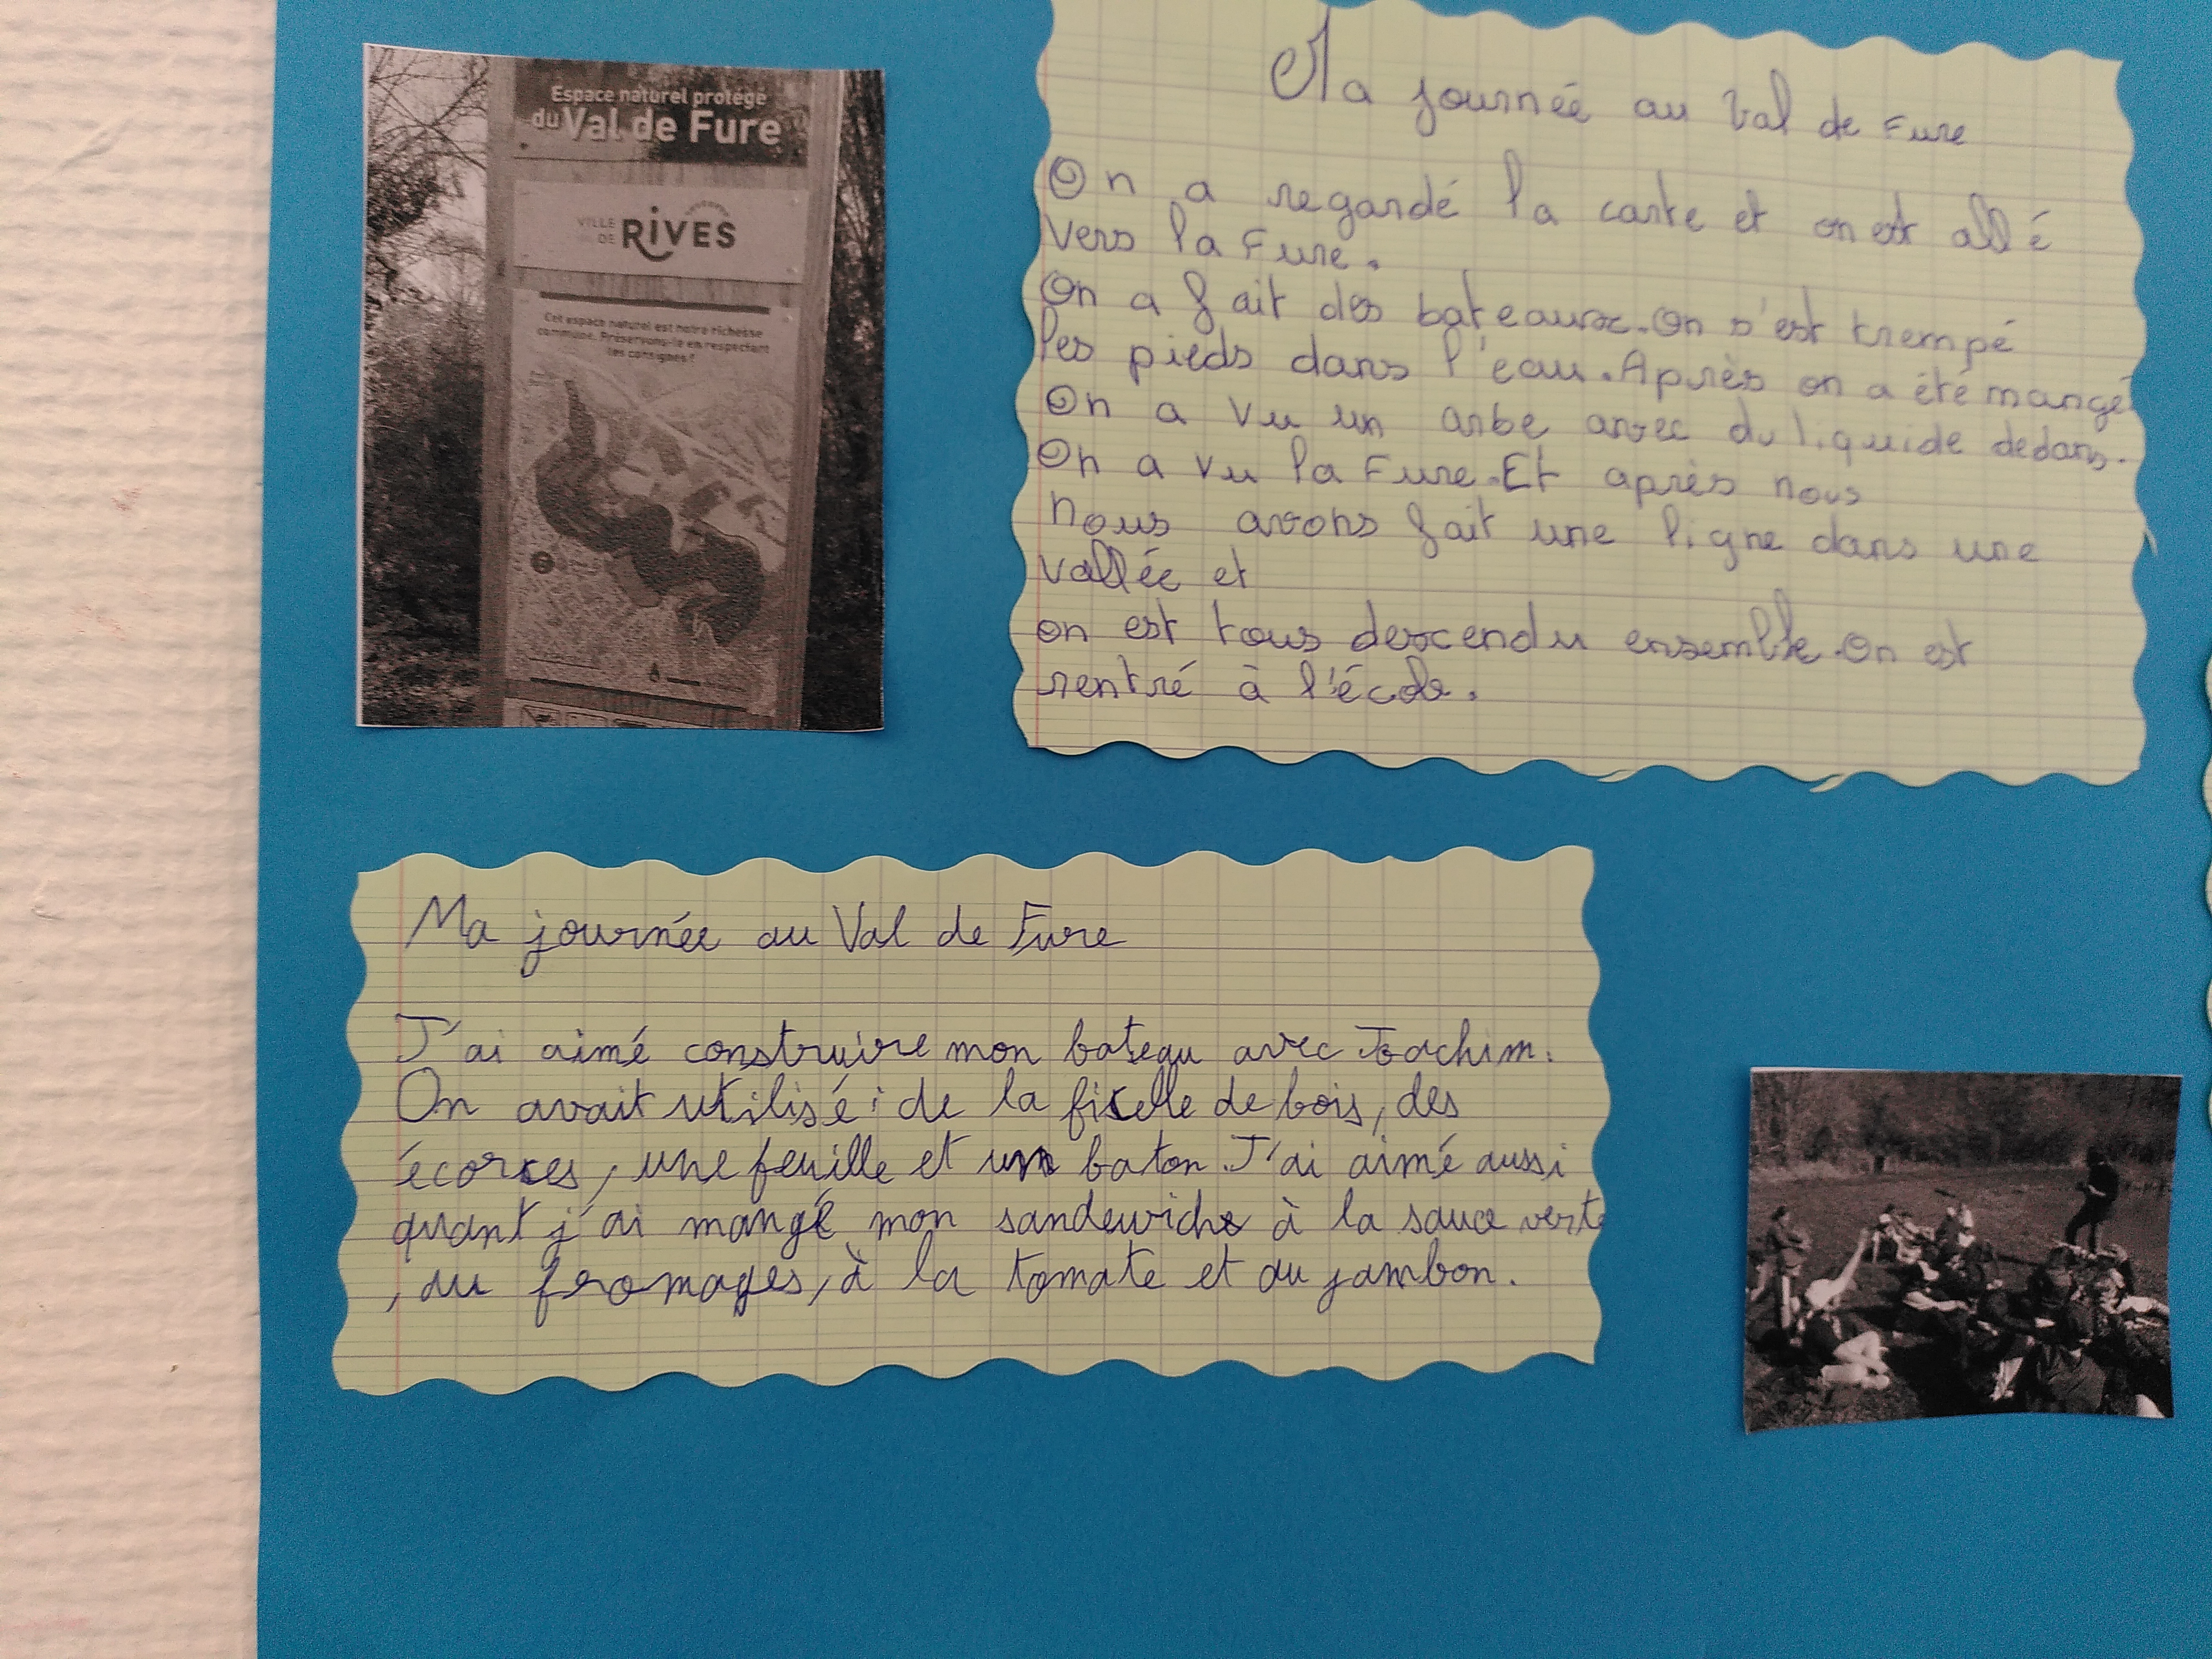 Espace naturel protégé
du Val de Fure
VILLE
DE
RIVES
Cet espace naturel est notre richesse
commune. Préservons-le en respectant
les consignes !
Ma journée au Val de Fure
On a regardé la carte et on est allé
vers la Fure.
On a fait des bateaux. On s'est trempé
les pieds dans l'eau. Après on a été mangé
On a vu un arbe avec du liquide dedans.
On a vu la Fure. Et après nous
nous avons fait une ligne dans une
vallée et
on est tous descendu ensemble. On est
rentré à l'école.
Ma journée au Val de Fure
J'ai aimé construire mon bateau avec Joachim.
On avait utilisé : de la ficelle de bois, des
écorces, une feuille et un baton. J'ai aimé aussi
quant j'ai mangé mon sandewichs à la sauce verte
, au fromages, à la tomate et au jambon.